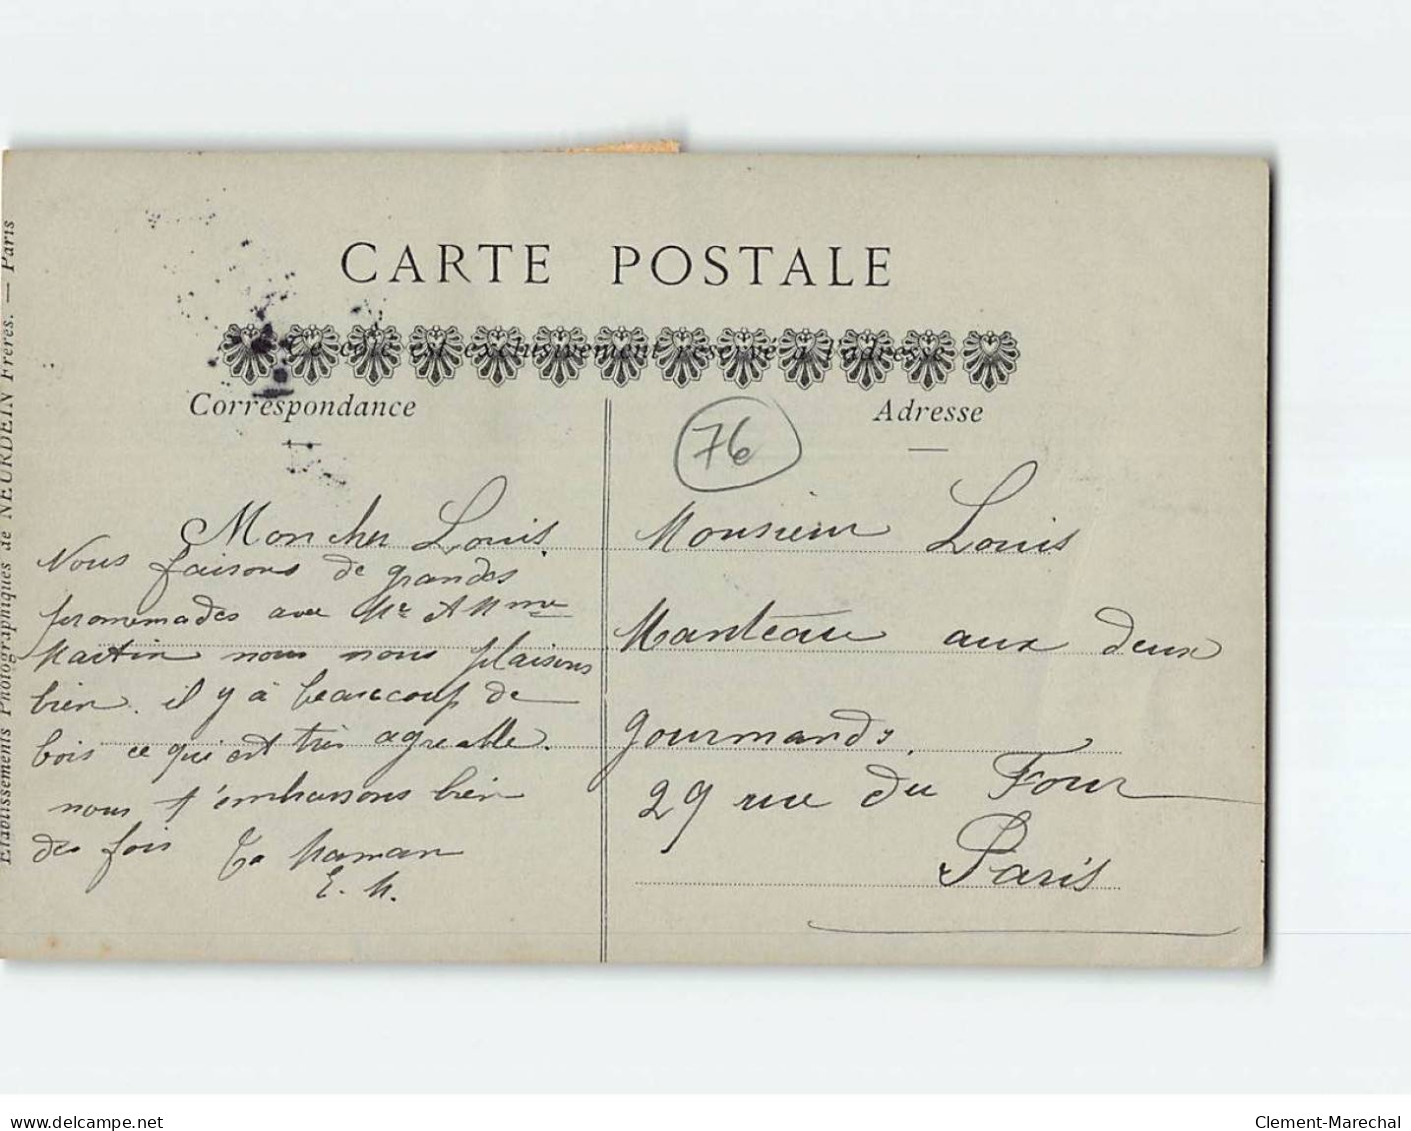 CARTE POSTALE
Ce côté est exclusivement réservé à l'adresse
Correspondance
Adresse
76
Mon cher Louis.
Nous faisons de grandes
promenades avec Mr & Mme
Martin nous nous plaisons
bien. il y à beaucoup de
bois ce qui est très agreable.
nous t'embrassons bien
des fois Ta Maman
E. M.
Monsieur Louis
Manteau aux deux
gourmands.
29 rue du Four
Paris
Etablissements Photographiques de NEURDEIN Frères. — Paris
www.delcampe.net
Clement-Marechal